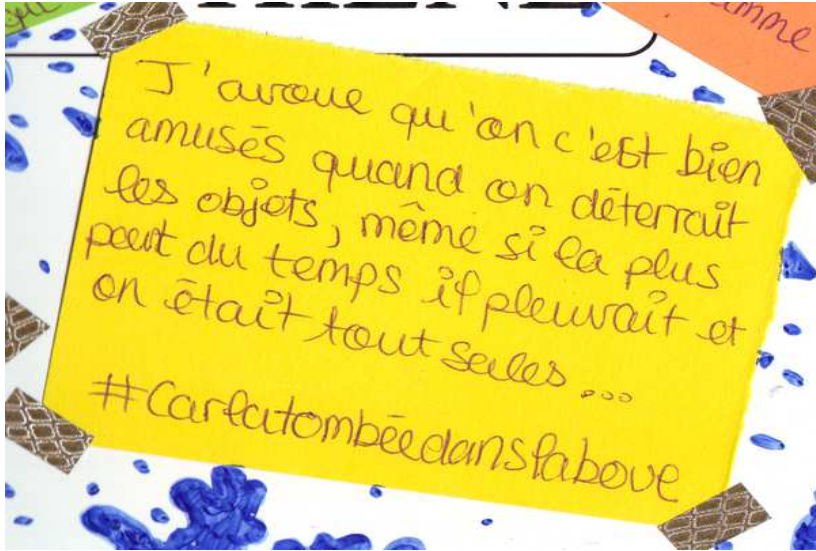 J'avoue qu'on c'est bien
amusés quand on déterrait
les objets, même si la plus
part du temps il pleuvait et
on était tout seules ...
#Carlatombéedanslaboue